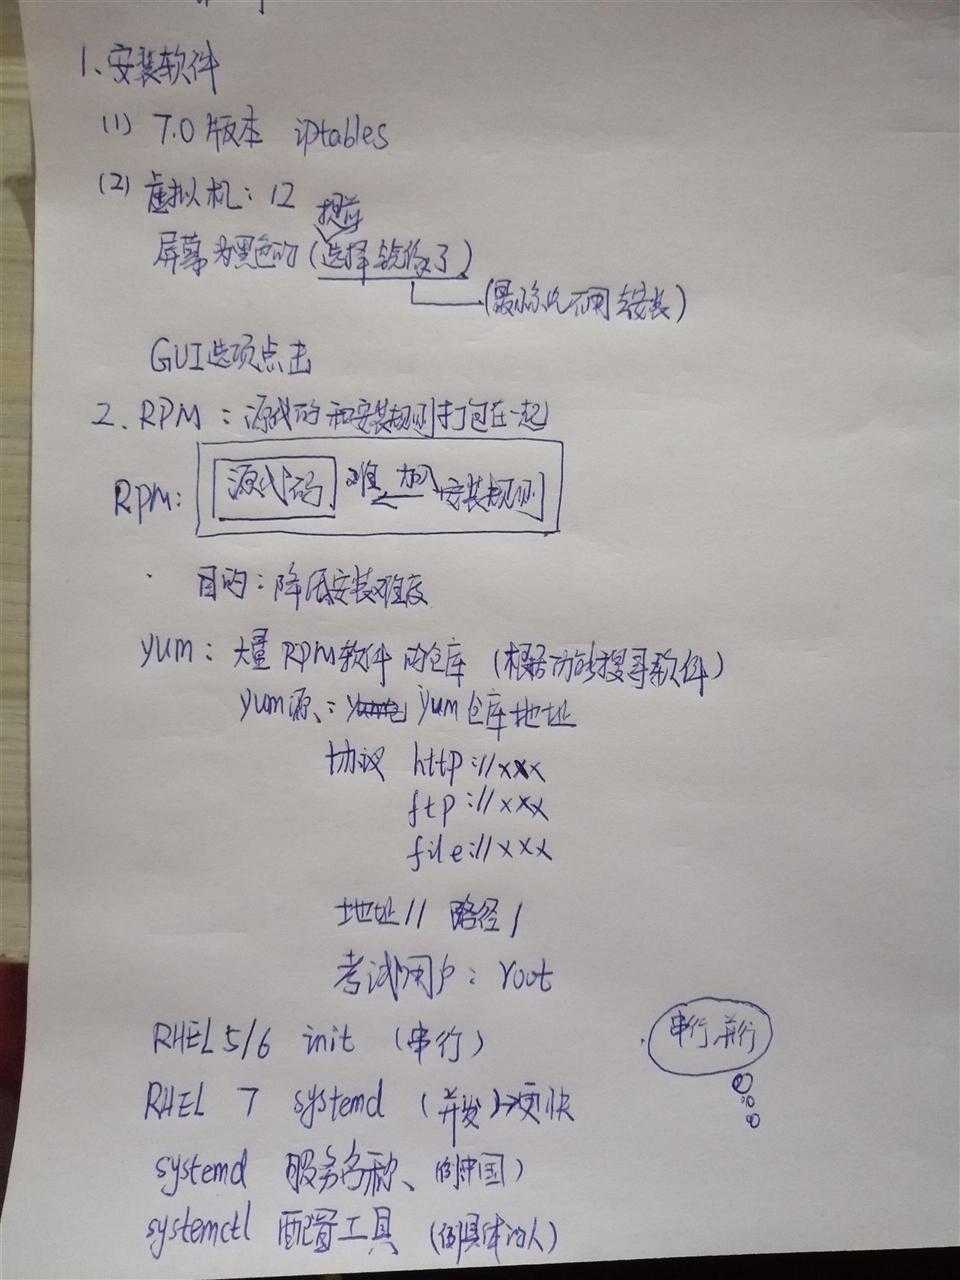 1、安装软件
(1) 7.0版本 iptables
(2) 虚拟机：12
提前
屏幕为黑色的（选择镜像了）
（最小化不用安装）
GUI选项点击
2、RPM：源代码和安装规则打包在一起
RPM: 源代码 难 加入 安装规则
目的：降低安装难度
yum：大量RPM软件的仓库（根据功能搜寻软件）
yum源：yum仓库地址
协议 http://xxx
ftp://xxx
file://xxx
地址// 路径/
考试用户：root
RHEL5/6 init（串行）
串行、并行
RHEL 7 systemd（并发）→更快
systemd 服务名称、（中国）
systemctl 配置工具（具体的人）